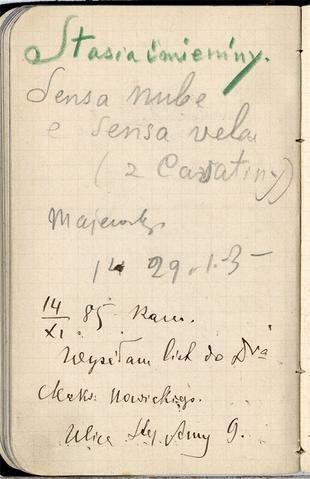 Stasia imieniny.
Sensa nube
e Sensa vela
(z Cavatiny)
Majewsk
14 29.1.35
14/XI 85 Ram.
Wysłałam list do Dra
Maks. Nowickiego.
Ulica Stej Anny 9.